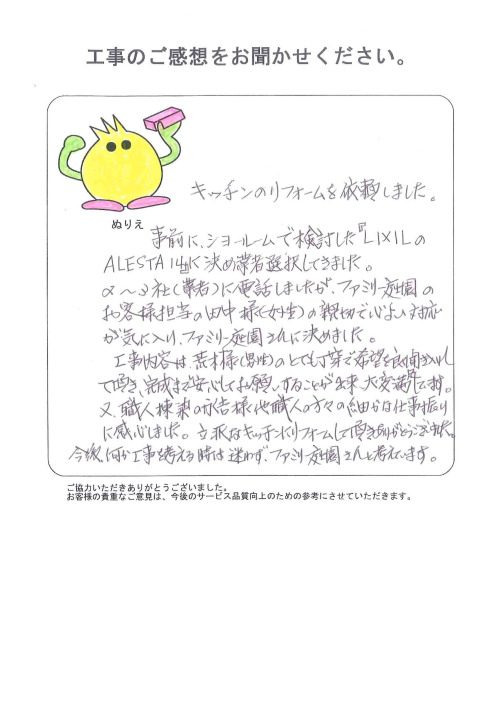 工事のご感想をお聞かせください。
キッチンのリフォームを依頼しました。
ぬりえ
事前に、ショールームで検討した『LIXILの
ALESTA 』に決め業者選択してきました。
2〜3社(業者)に電話しましたが、ファミリー庭園の
お客様担当の田中様(女性)の親切で心よい対応
が気に入り、ファミリー庭園さんに決めました。
工事内容は、荒木様(男性)のとても丁寧で希望を良聞き入れ
て頂き、完成まで安心してお願いすることが出来、大変満足です。
又、職人棟梁の永吉様や他職人の方々の細かな仕事振り
に感心しました。立派なキッチンにリフォームして頂きありがとうございました。
今後、何か工事を考える時は迷わず、ファミリー庭園さんと考えています。
ご協力いただきありがとうございました。
お客様の貴重なご意見は、今後のサービス品質向上のための参考にさせていただきます。